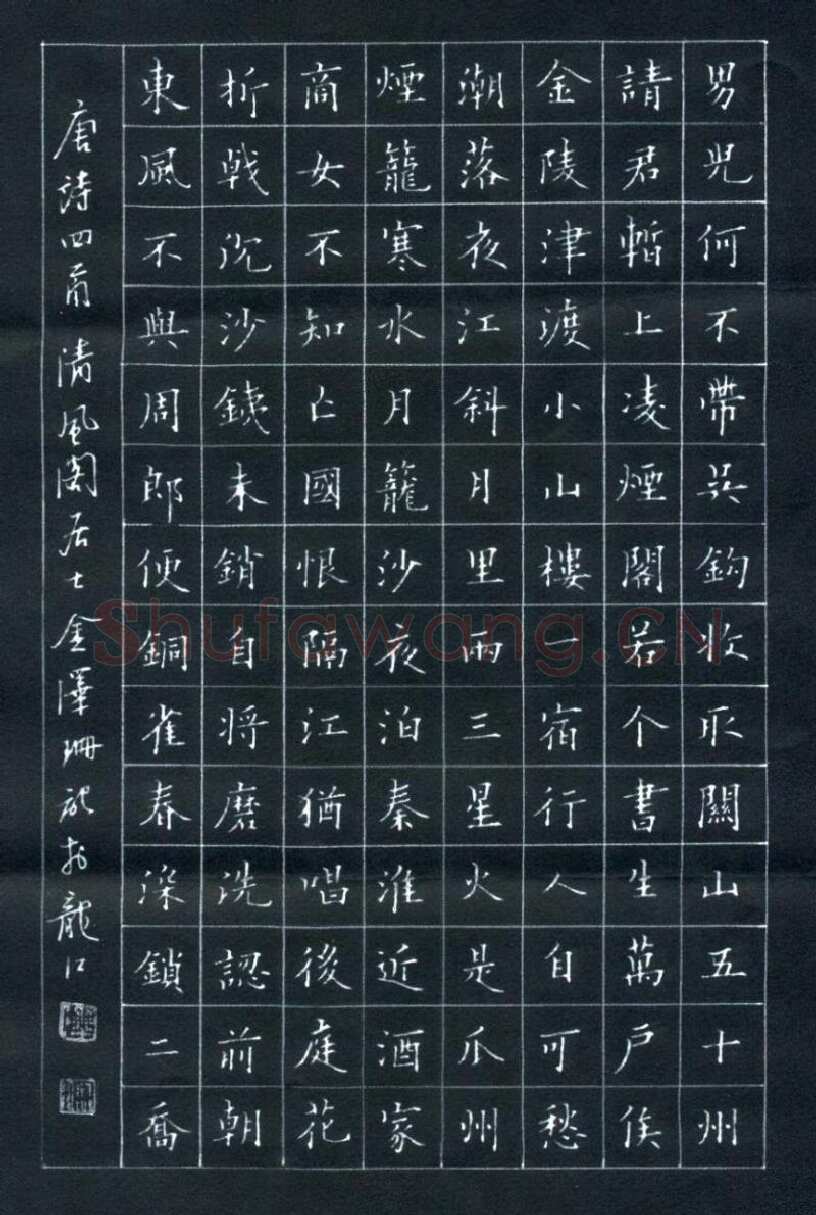 男兒何不帶吳鉤收取關山五十州
請君暫上凌煙閣若个書生萬户侯
金陵津渡小山樓一宿行人自可愁
潮落夜江斜月里兩三星火是瓜州
煙籠寒水月籠沙夜泊秦淮近酒家
商女不知亡國恨隔江猶唱後庭花
折戟沉沙鐵未銷自将磨洗認前朝
東風不與周郎便銅雀春深鎖二喬
唐詩四首清風閣居士金澤珊於龍江
Shufawang.CN